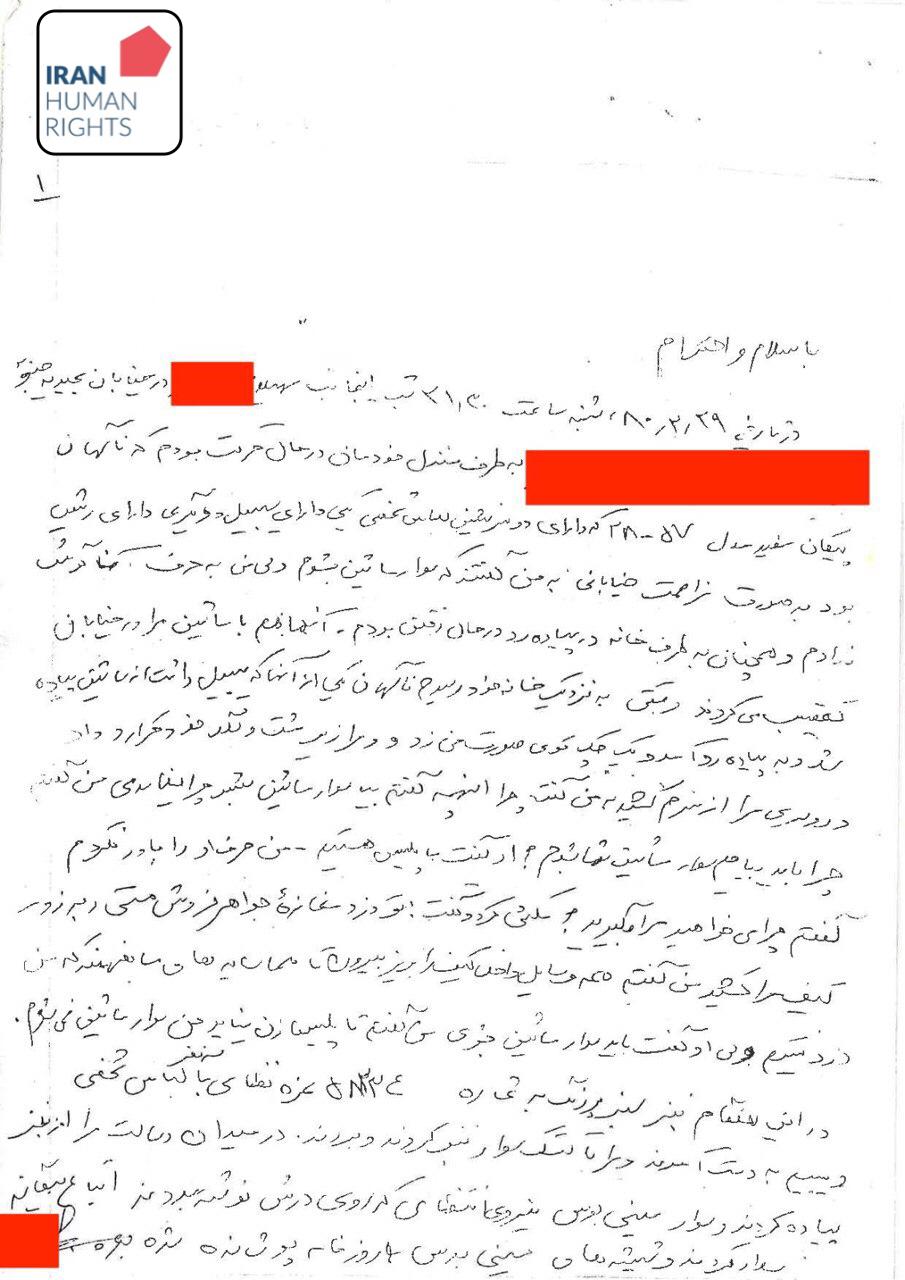 IRAN
HUMAN
RIGHTS
۱
با سلام و احترام
در تاریخ ۸۰٫۳٫۲۹ شنبه ساعت ۲۱٫۳۰ شب اینجانب در خیابان مجیدیه جنوبی
به طرف منزل خودمان در حال حرکت بودم که ناگهان
پیکان سفید مدل ۵۷-۲۸ که دارای دو سرنشین لباس شخصی یکی دارای سبیل و دیگری دارای ریش
بود به صورت مزاحمت خیابانی به من گفتند که سوار ماشین شوم ولی من به حرف
ندادم و همچنان به طرف خانه در پیاده رو در حال رفتن بودم. آنها هم با ماشین مرا در خیابان
تعقیب می کردند وقتی به نزدیک خانه خود رسیدم ناگهان یکی از آنها که سبیل داشت از ماشین پیاده
شد و به پیاده رو آمد و یک چک توی صورت من زد و مرا زیر مشت و لگد خود قرار داد
و روسری مرا از سرم کشید به من گفت چرا اینهمه گفتم بیا سوار ماشین بشو چرا نیامدی من گفتم
چرا باید بیایم سوار ماشین شما بشوم؟ او گفت ما پلیس هستیم - من حرف او را باور نکردم
گفتم چرا می خواهید مرا بگیرید؟ مکثی کرد و گفت: تو دزد مغازهٔ جواهر فروشی هستی و به زور
کیف مرا کشید من گفتم همه وسایل داخل کیف را بریز بیرون تا همسایه های ما بفهمند که من
دزد نیستم ولی او گفت باید سوار ماشین شوی من گفتم تا پلیس زن نیاید من سوار ماشین نمی شوم.
در این هنگام بنز سبز پررنگ به شماره نظامی با لباس شخصی
و بیسیم به دست آمدند و مرا با کتک سوار بنز کردند و بردند. در میدان رسالت مرا از بنز
پیاده کردند و سوار مینی بوس نیروی انتظامی که روی درش نوشته بودند
سوار کردند و شیشه های مینی بوس با روزنامه پوشانده شده بود